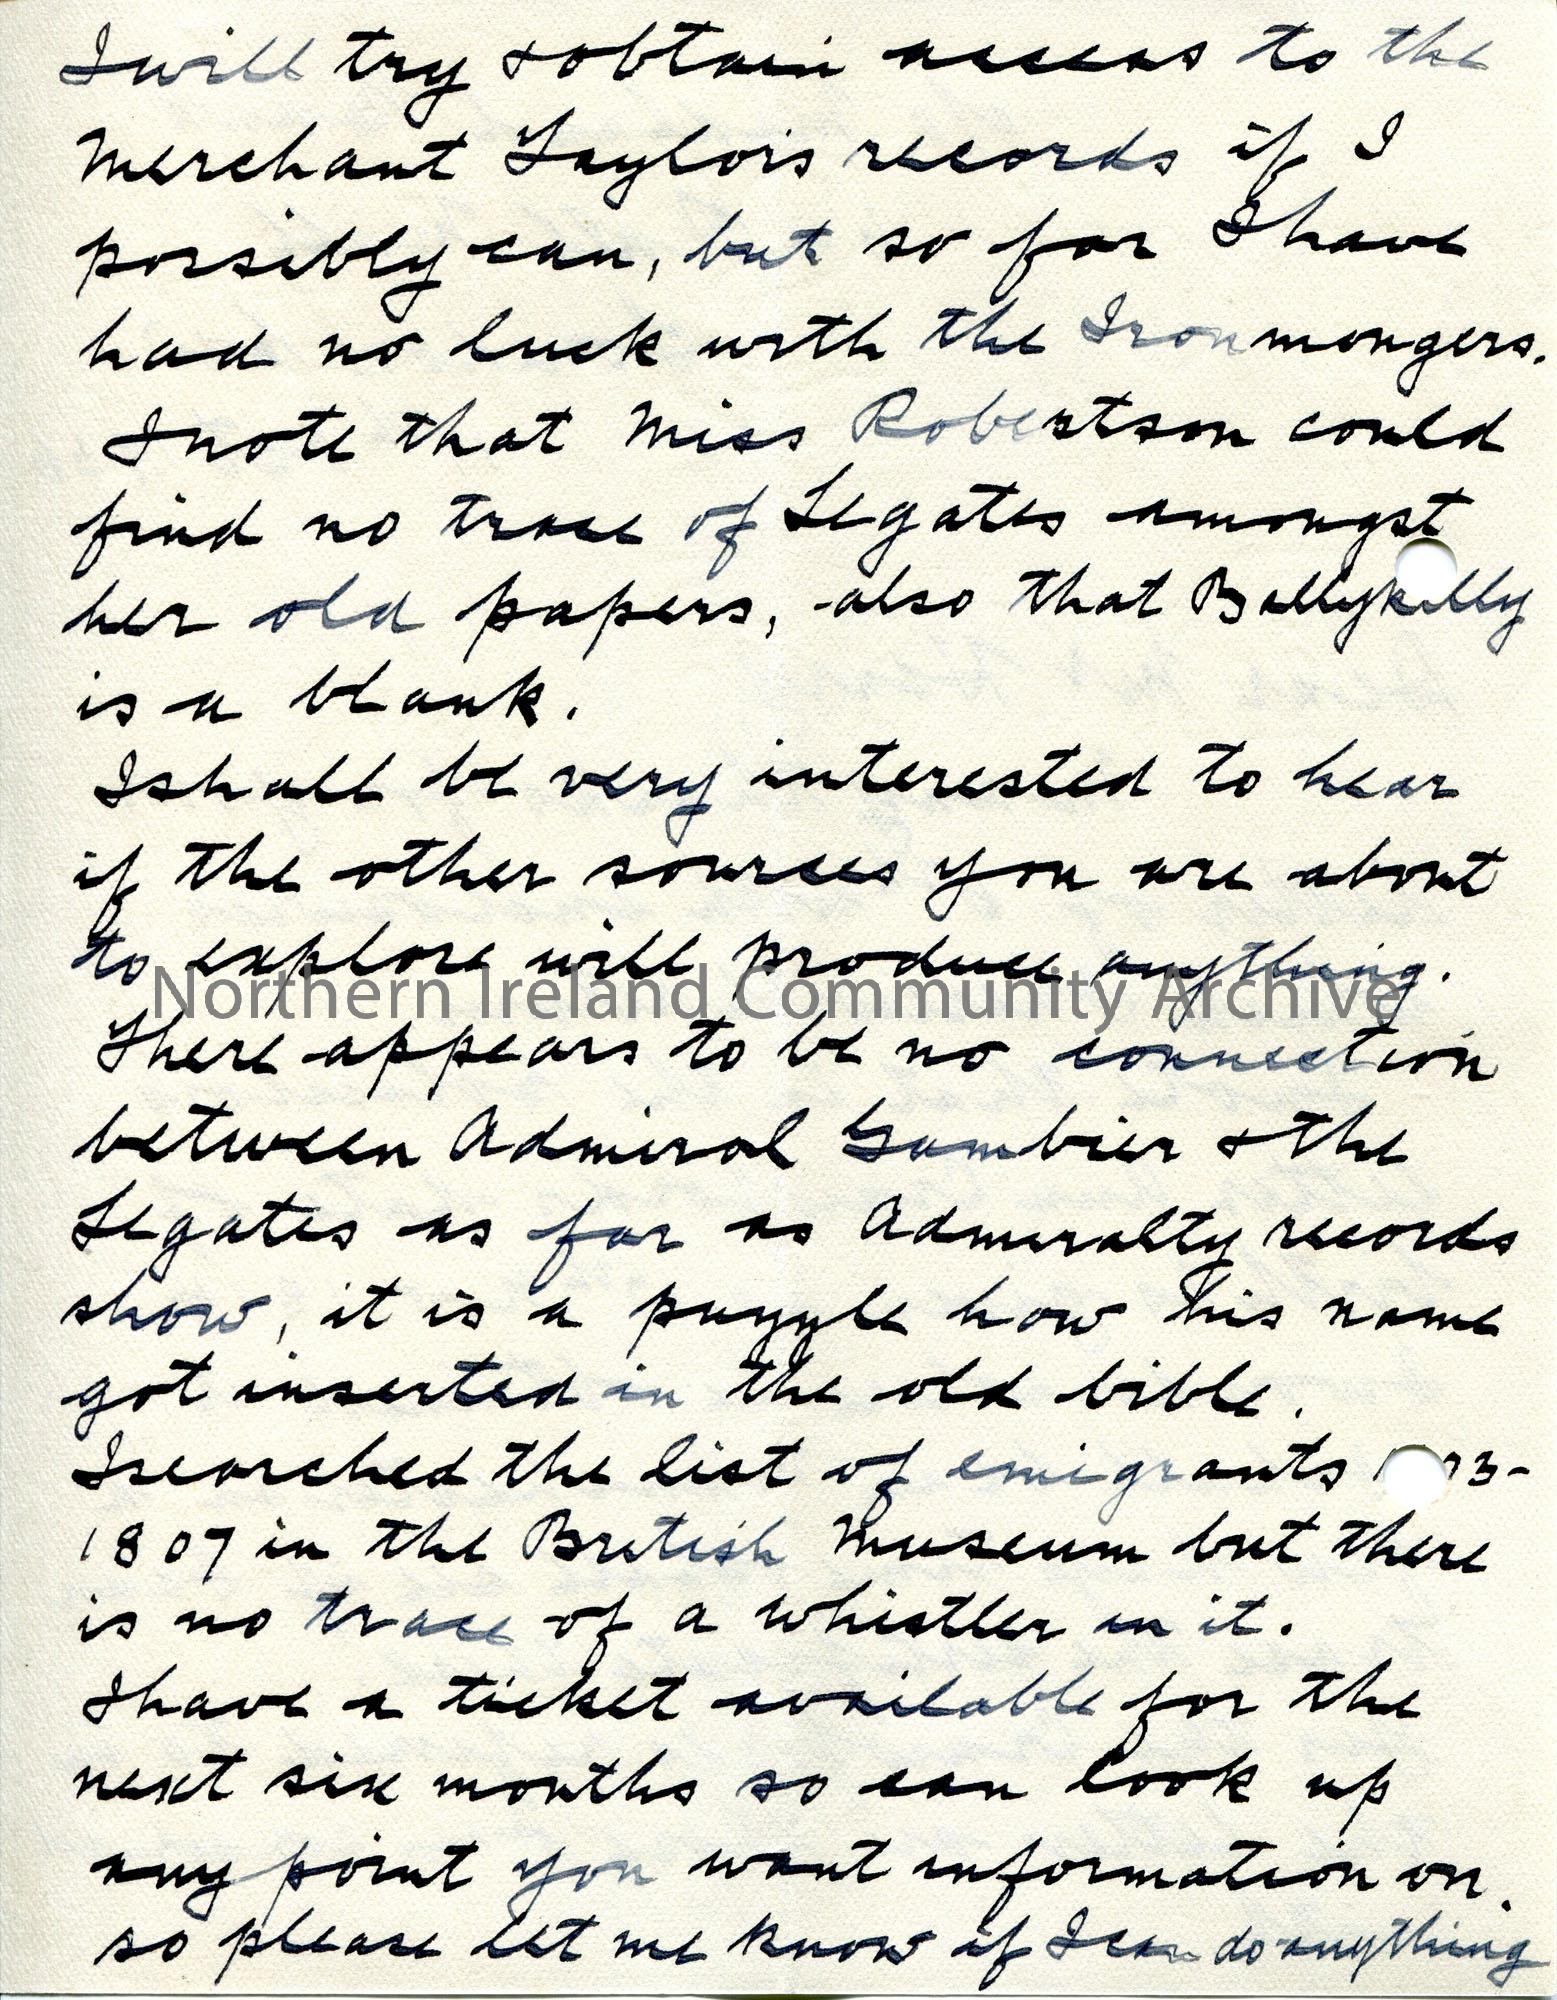 I will try & obtain access to the
Merchant Taylors records if I
possibly can, but so far I have
had no luck with the Ironmongers.
I note that Miss Robertson could
find no trace of Legates amongst
her old papers, also that Ballykelly
is a blank.
I shall be very interested to hear
if the other sources you are about
to explore will produce anything.
Northern Ireland Community Archive
There appears to be no connection
between Admiral Gambier & the
Legates as far as Admiralty records
show, it is a puzzle how his name
got inserted in the old bible.
I searched the list of emigrants 3-
1807 in the British Museum but there
is no trace of a Whistler in it.
I have a ticket available for the
next six months so can look up
any point you want information on.
so please let me know if I can do anything